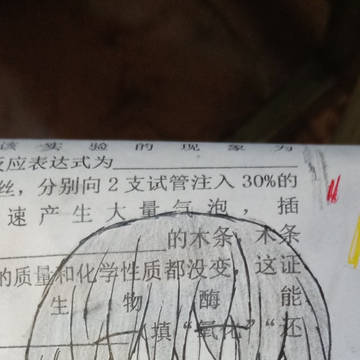 该实验的现象为
反应表达式为
丝，分别向2支试管注入30%的
速产生大量气泡，插
的木条，木条
的质量和化学性质都没变，这证
生物酶能
填“氧化”“还